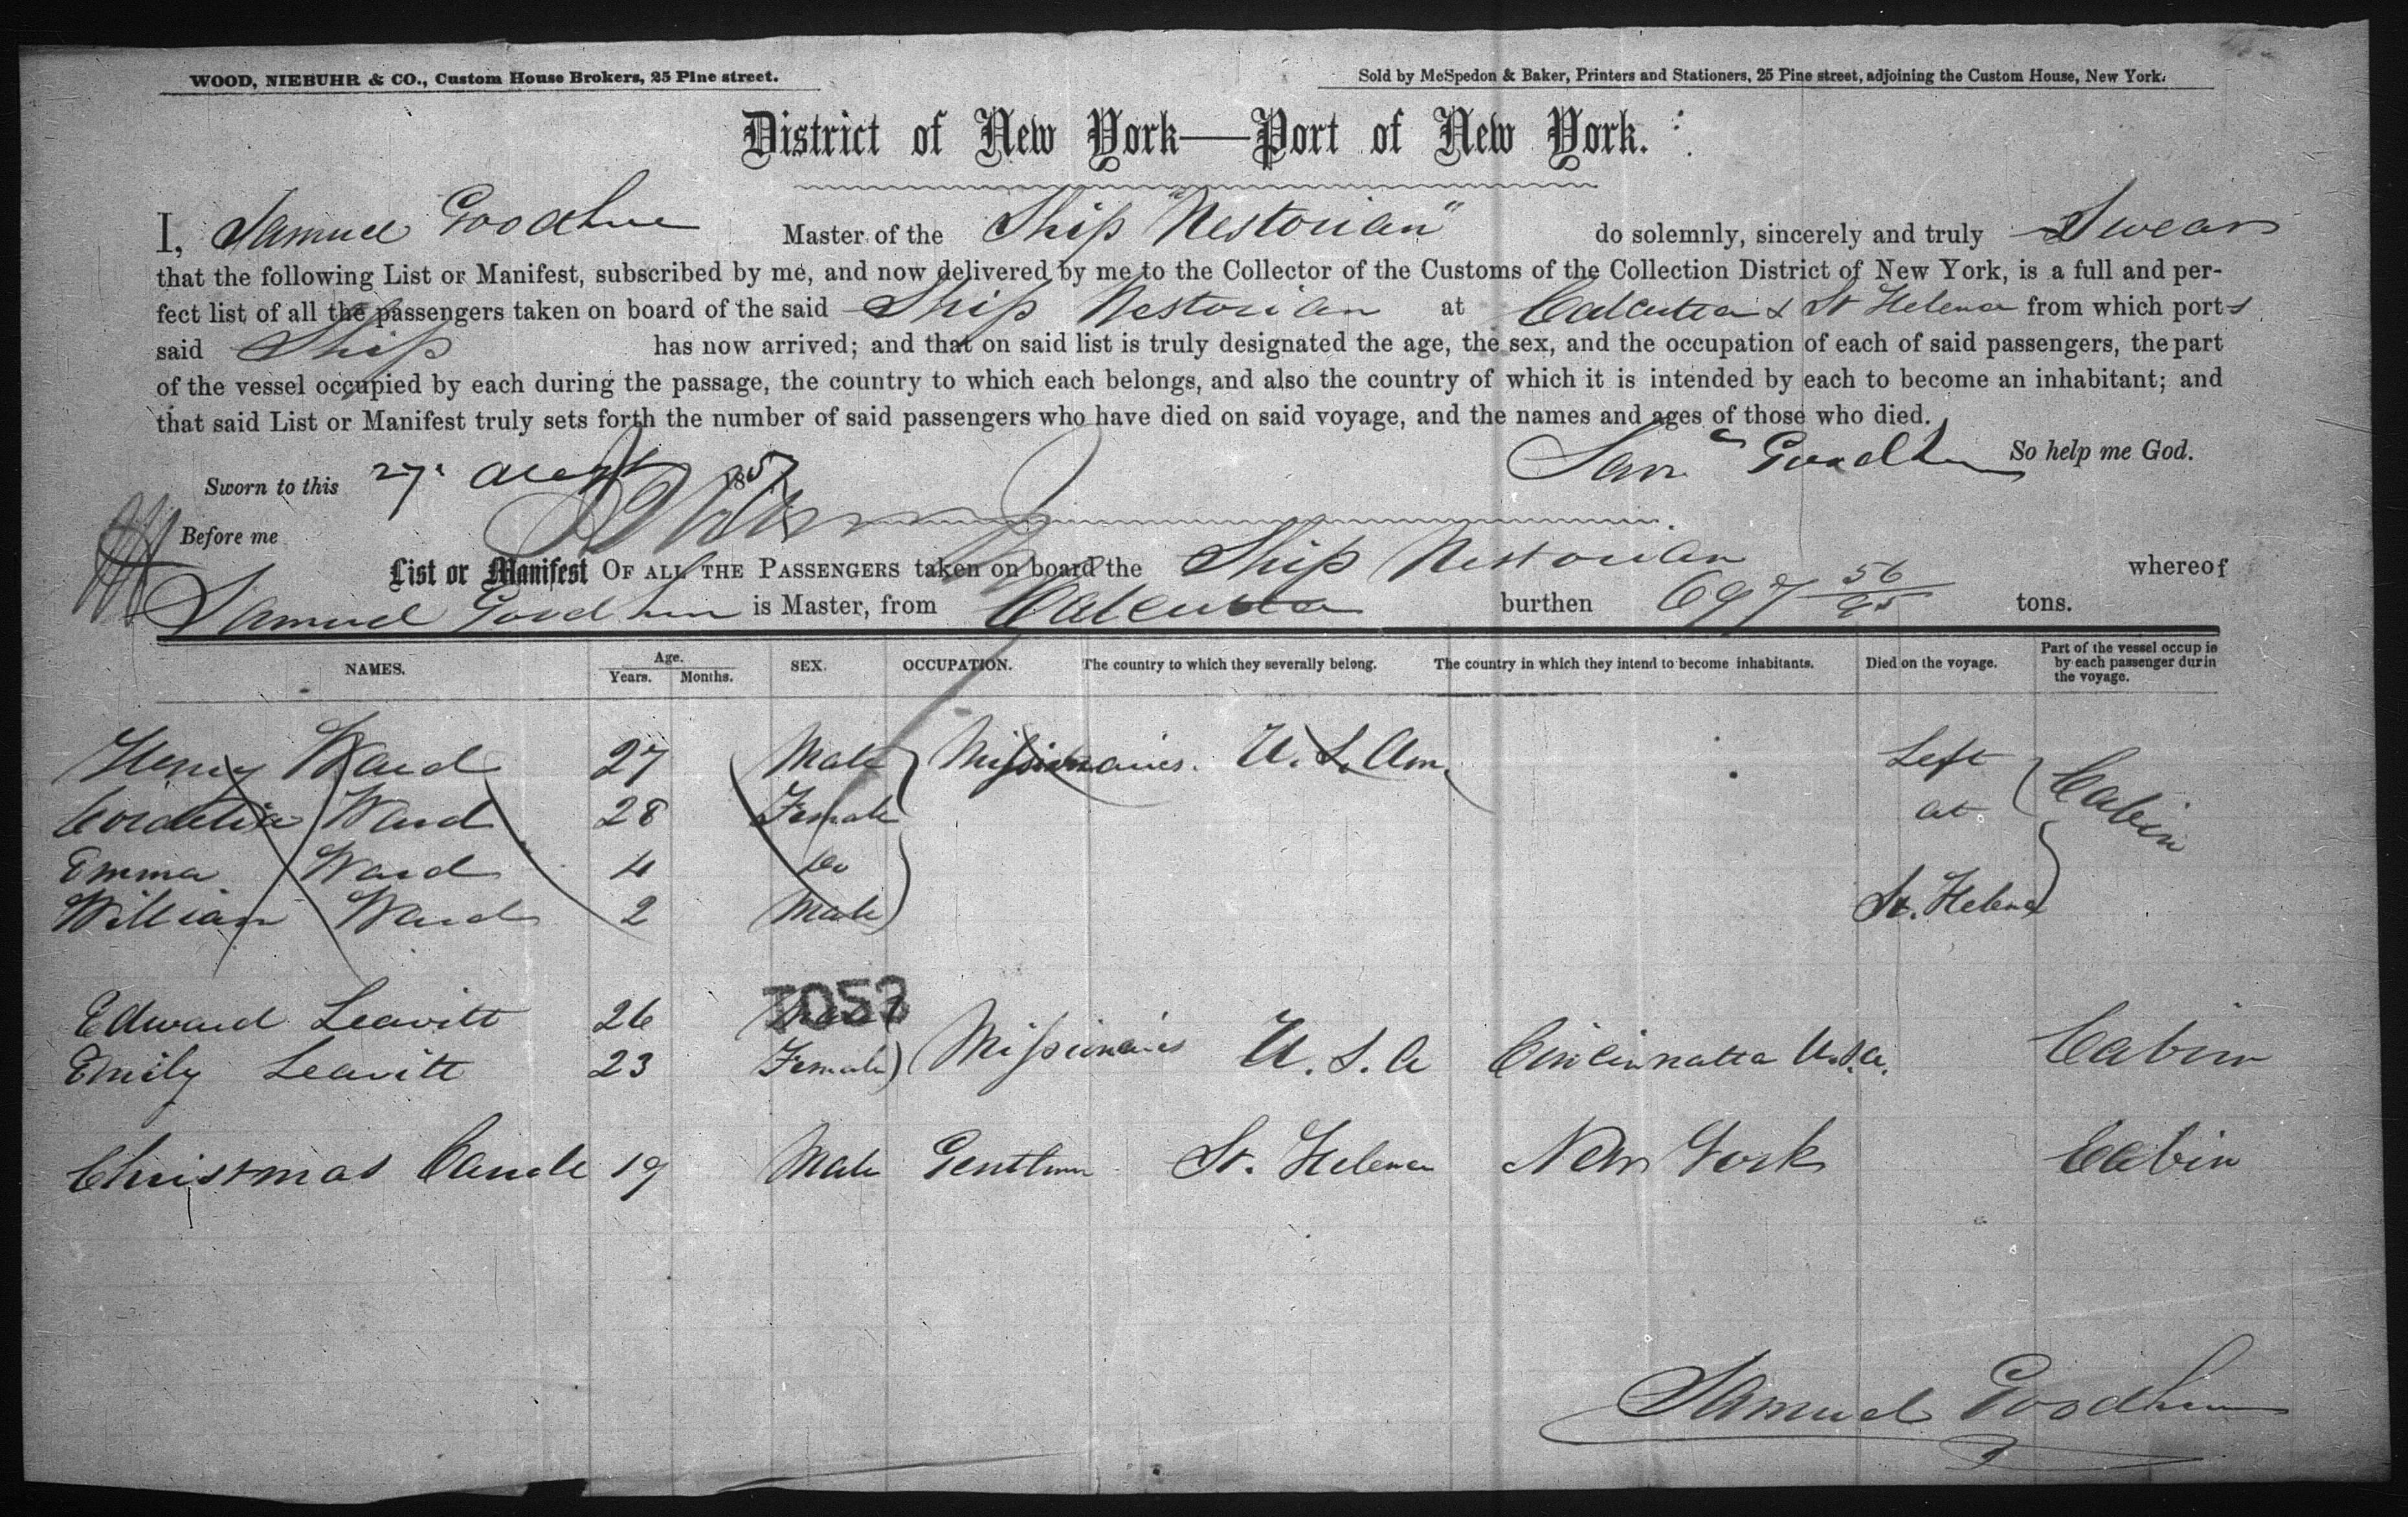 WOOD, NIEBUHR & CO., Custom House Brokers, 25 Pine street.
Sold by McSpedon & Baker, Printers and Stationers, 25 Pine street, adjoining the Custom House, New York.
District of New York—Port of New York.
I, Samuel Goodhue Master of the Ship "Nestorian" do solemnly, sincerely and truly Swear
that the following List or Manifest, subscribed by me, and now delivered by me to the Collector of the Customs of the Collection District of New York, is a full and per-
fect list of all the passengers taken on board of the said Ship Nestorian at Calcutta & St Helena from which ports
said Ship has now arrived; and that on said list is truly designated the age, the sex, and the occupation of each of said passengers, the part
of the vessel occupied by each during the passage, the country to which each belongs, and also the country of which it is intended by each to become an inhabitant; and
that said List or Manifest truly sets forth the number of said passengers who have died on said voyage, and the names and ages of those who died.
Saml Goodhue So help me God.
Sworn to this 27. Augt 1857
Before me
List or Manifest OF ALL THE PASSENGERS taken on board the Ship Nestorian whereof
Samuel Goodhue is Master, from Calcutta burthen 697 56/95 tons.
NAMES. Age. Years. Months. SEX. OCCUPATION. The country to which they severally belong. The country in which they intend to become inhabitants. Died on the voyage. Part of the vessel occup ie by each passenger durin the voyage.
Henry Ward 27 Male Missionaries. U. S. Am. Left Cabin
Cordelia Ward 28 Female at
Emma Ward 4 Do
William Ward 2 Male St. Helena
Edward Leavitt 26 Male
Emily Leavitt 23 Female Missionaries U. S. A Cincinnatta U.S.A. Cabin
Christmas 19 Male Gentlmn St. Helena New York Cabin
Samuel Goodhue